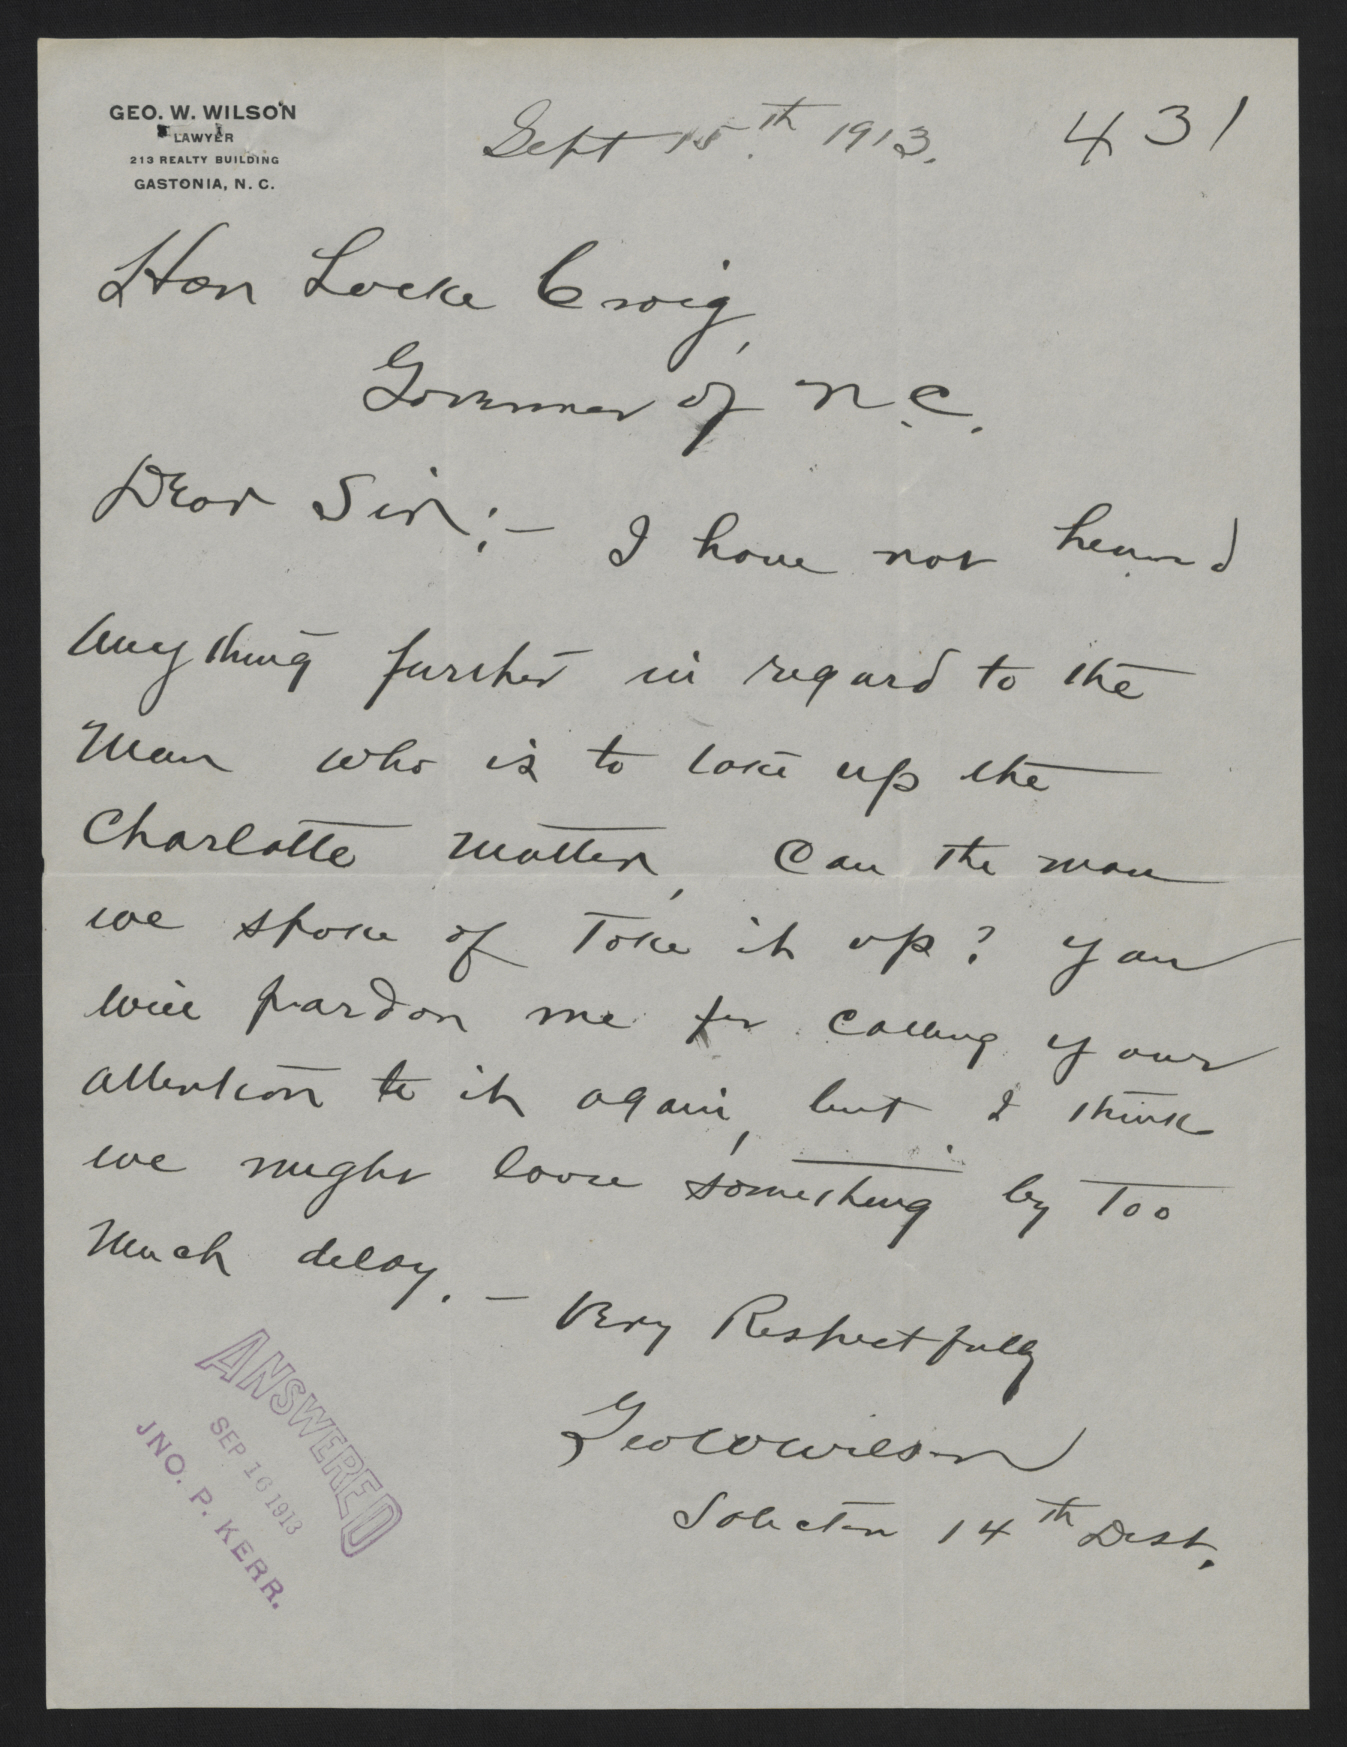 GEO. W. WILSON
LAWYER
213 REALTY BUILDING
GASTONIA, N. C.
Sept 15th 1913.
431
Hon Locke Craig,
Governor of N.C.
Dear Sir:- I have not heard
anything further in regard to the
man who is to take up the
Charlotte matter, Can the man
we spoke of take it up? You
will pardon me for calling your
attention to it again, but I think
we might loose something by too
much delay. -
Very Respectfully
Geo W Wilson
Solicitor 14th Dist.
ANSWERED
SEP 16 1913
JNO. P. KERR.